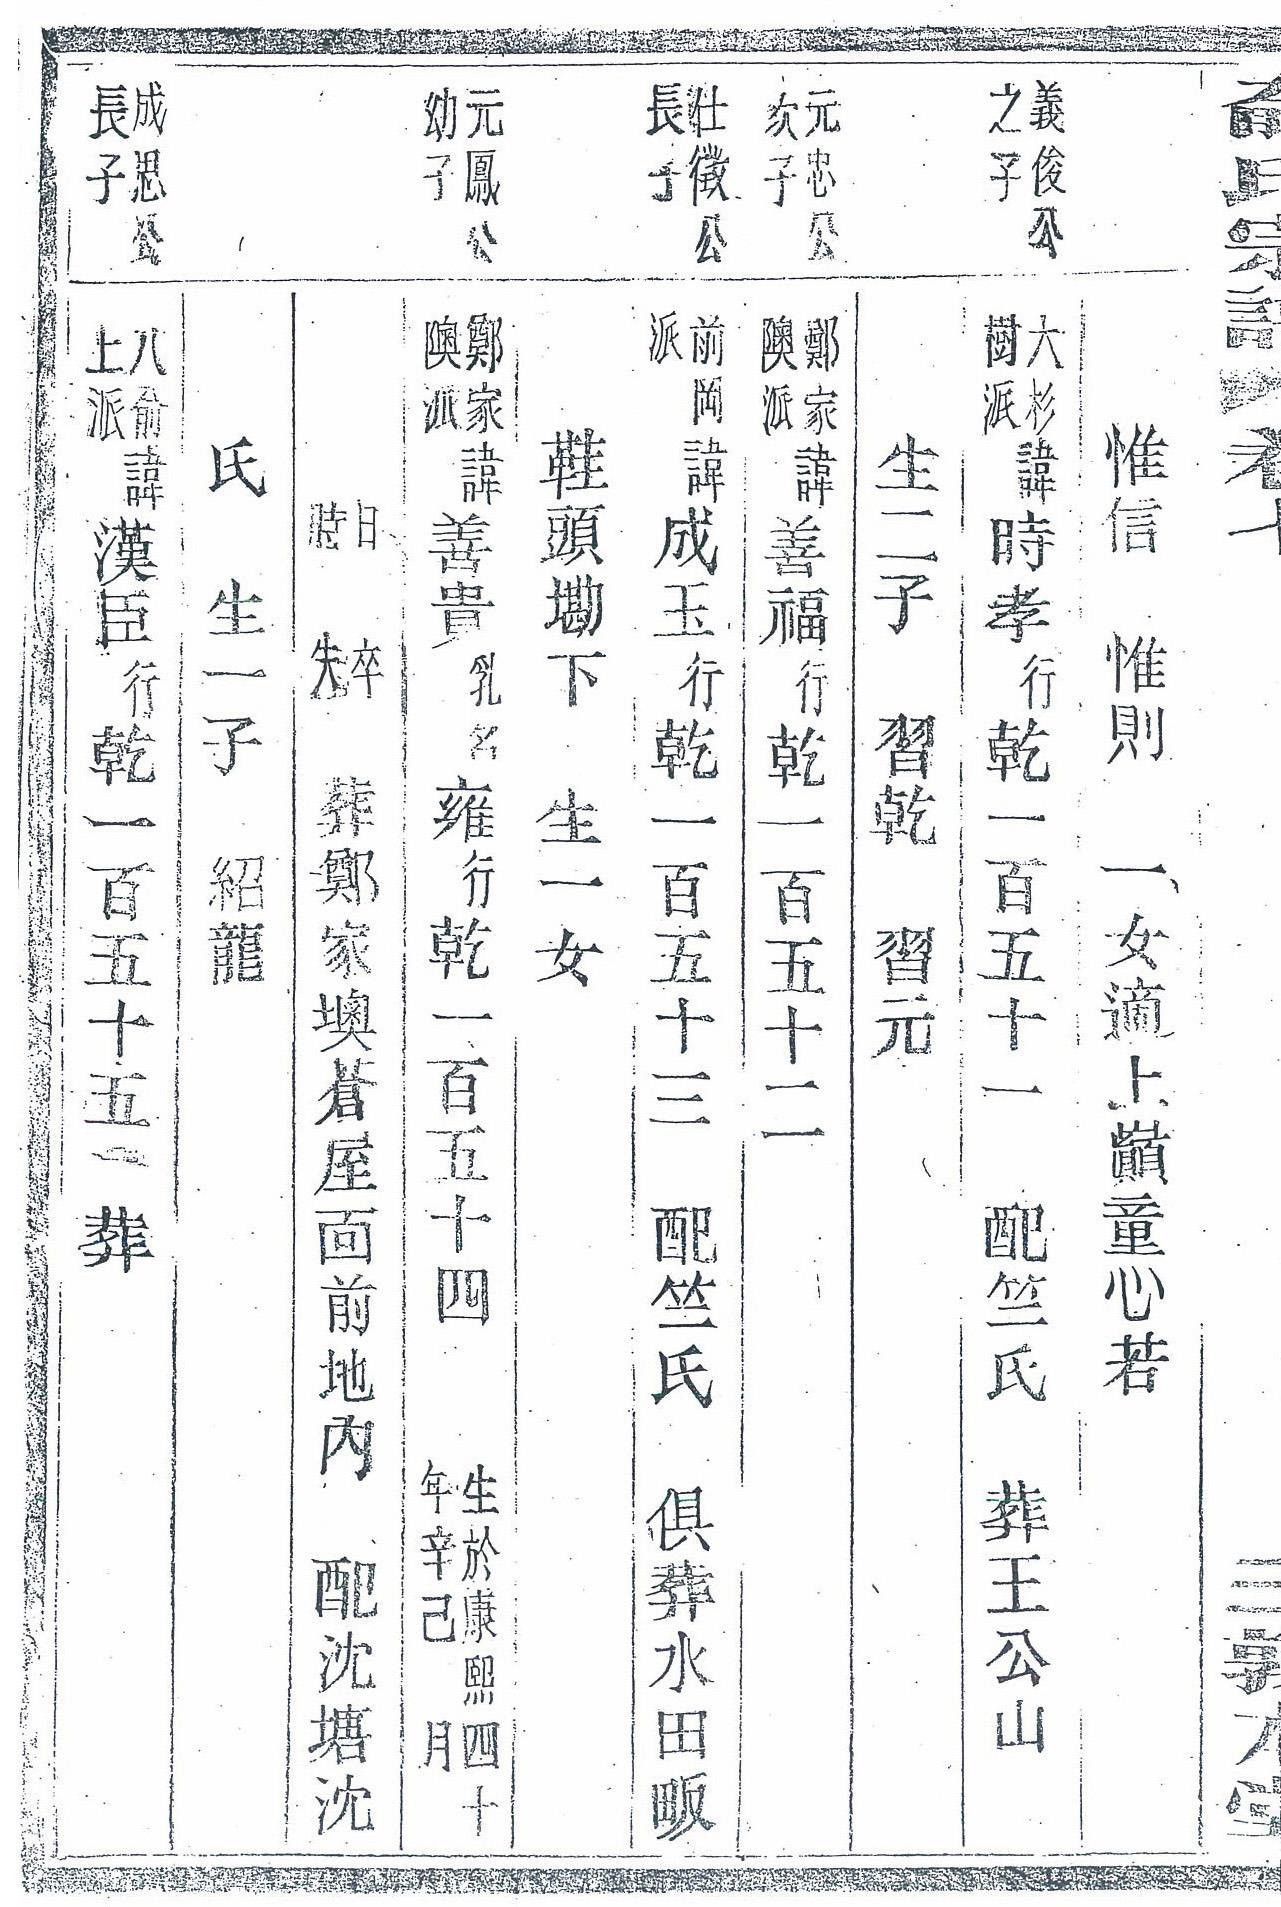 俞氏宗譜 卷十
三 敦本堂
惟信 惟則 一女適上巔童心若
義俊公
之子
大杉
樹派
諱時孝行乾一百五十一 配竺氏 葬王公山
生二子 習乾 習元
元忠公
次子
鄭家
隩派
諱善福行乾一百五十二
仕徵公
長子
前岡
派
諱成玉行乾一百五十三 配竺氏 俱葬水田畈
鞋頭墈下 生一女
元鳳公
幼子
鄭家
隩派
諱善貴乳名雍行乾一百五十四
生於康熙四十
年辛己 月
日 卒
時 失
葬鄭家墺蒼屋面前地內 配沈塘沈
氏 生一子 紹龍
成思公
長子
八俞
上派
諱漢臣行乾一百五十五 葬